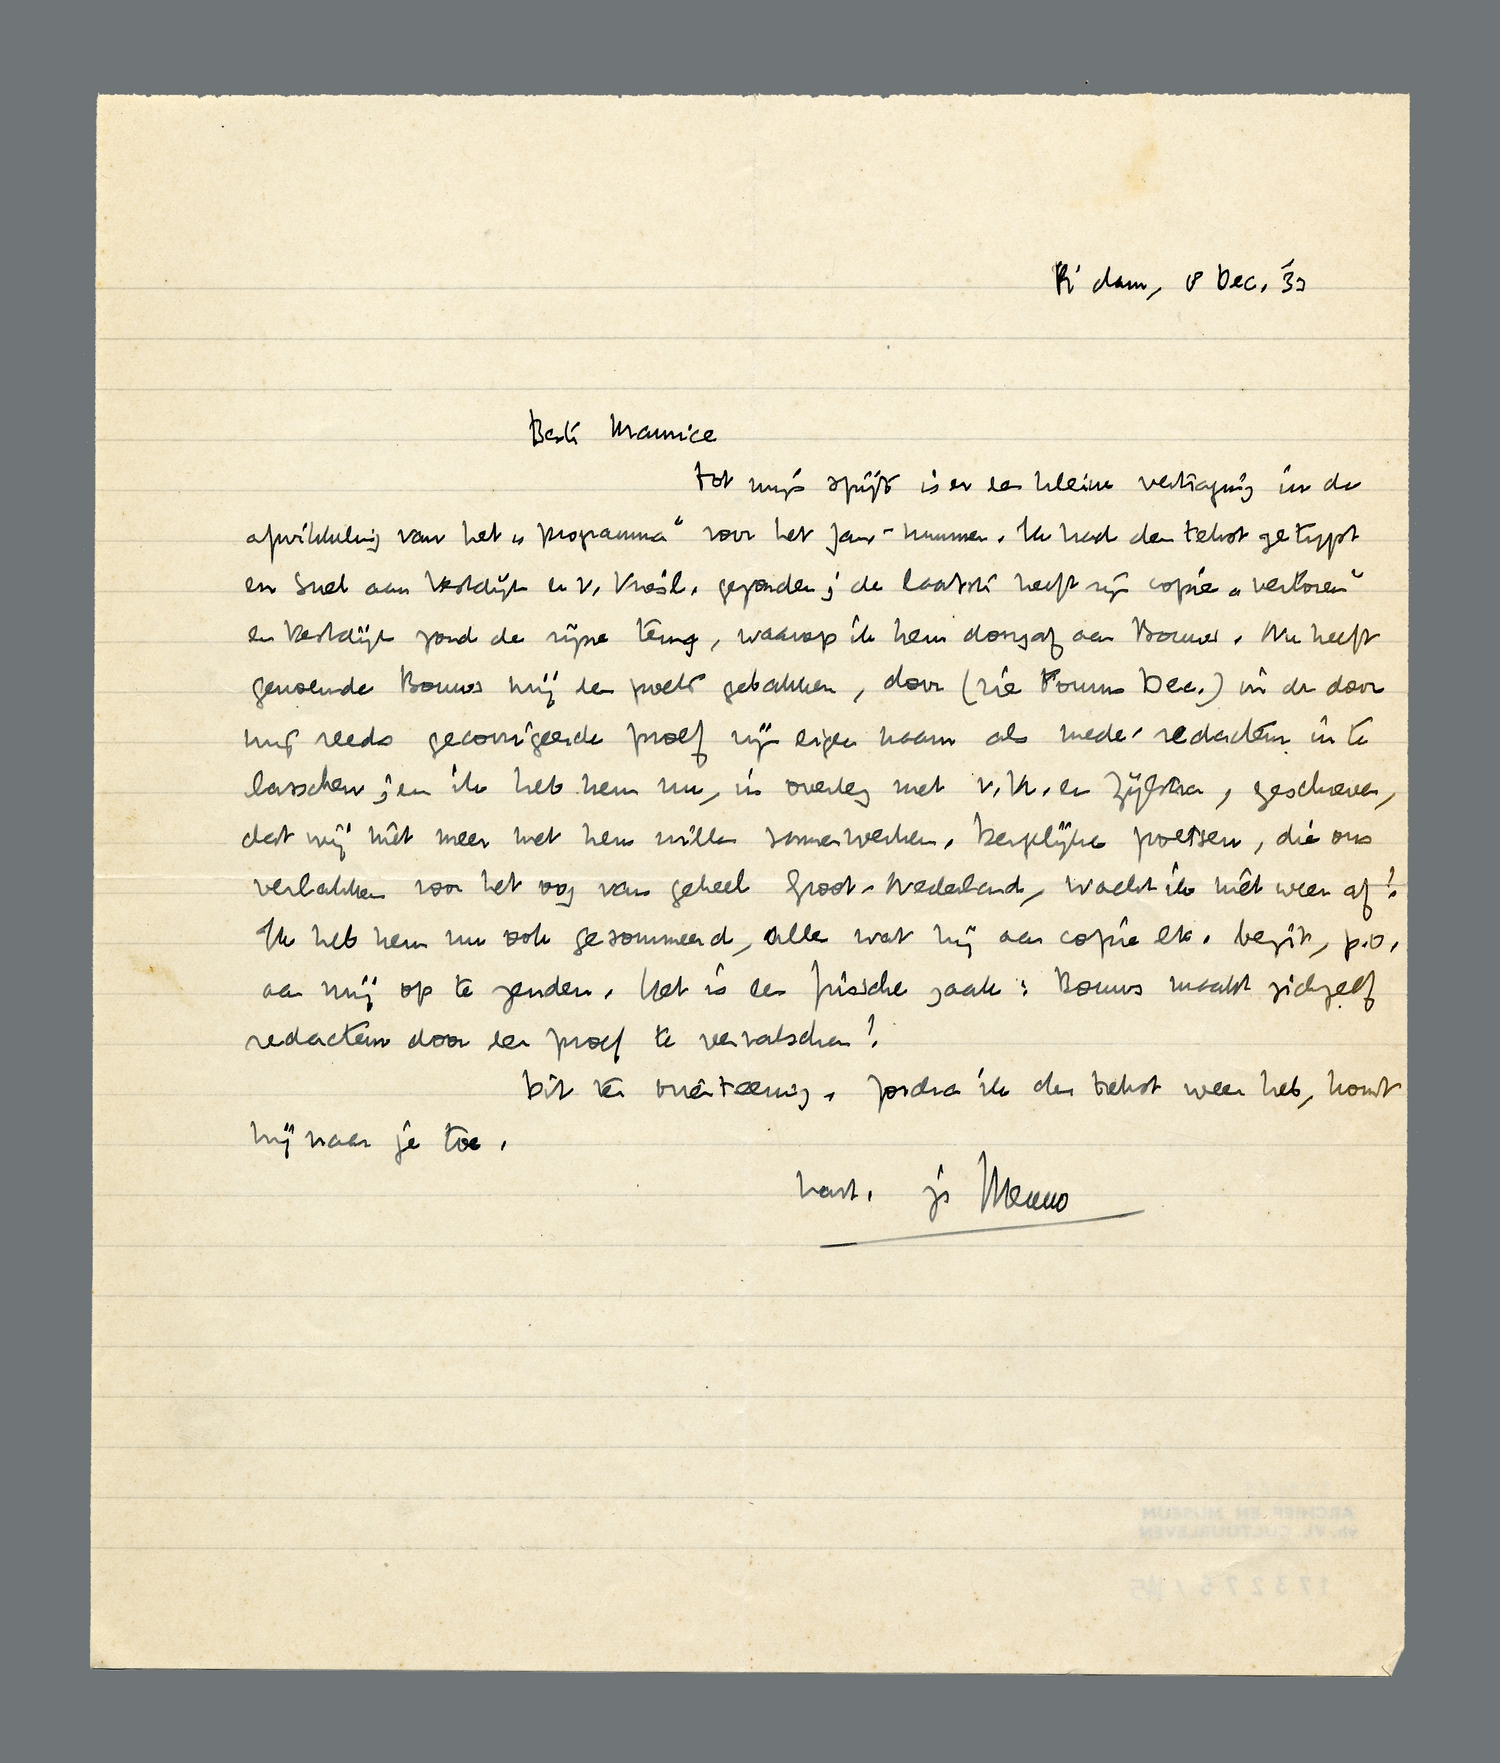 R'dam, 8 Dec. '33
Beste Maurice
Tot mijn spijt is er een kleine vertraging in de
afwikkeling van het „programma" voor het Jan-nummer. Ik had den tekst getypt
en snel aan Vestdijk en v. Kreil. gezonden; de laatste heeft zijn copie „verloren"
en Vestdijk zond de zijne terug, waarop ik hem doorgaf aan Bouws. Nu heeft
genoemde Bouws mij een poets gebakken, door (zie Forum Dec.) in de door
mij reeds gecorrigeerde proef zijn eigen naam als mede-redacteur in te
lasschen; en ik heb hem nu, in overleg met v.Kr. en Zijlstra, geschreven,
dat wij niet meer met hem willen samenwerken. Dergelijke poetsen, die ons
verlakken voor het oog van geheel Groot-Nederland, wacht ik niet weer af!
Ik heb hem nu ook gesommeerd, alles wat hij aan copie etc. bezit, p.o.
aan mij op te zenden. Het is een frissche zaak: Bouws maakt zichzelf
redacteur door een proef te vervalschen!
Dit ter oriënteering. Zoodra ik den tekst weer heb, komt
hij naar je toe.
hart. gr. Menno
ARCHIEF EN MUSEUM
v.h. VL. CULTUURLEVEN
173275 /